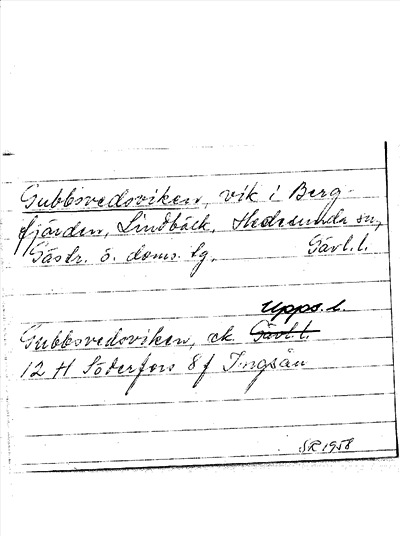 Gubbovedsviken, vik i Berg-
fjärden, Lindbäck, Hedesunda sn,
Gästr. ö. doms. tg. Gävl. l.
Upps. l.
Gubbovedsviken, ek Gävl. l.
12 H Söderfors 8 f Ingsån
SR 1958